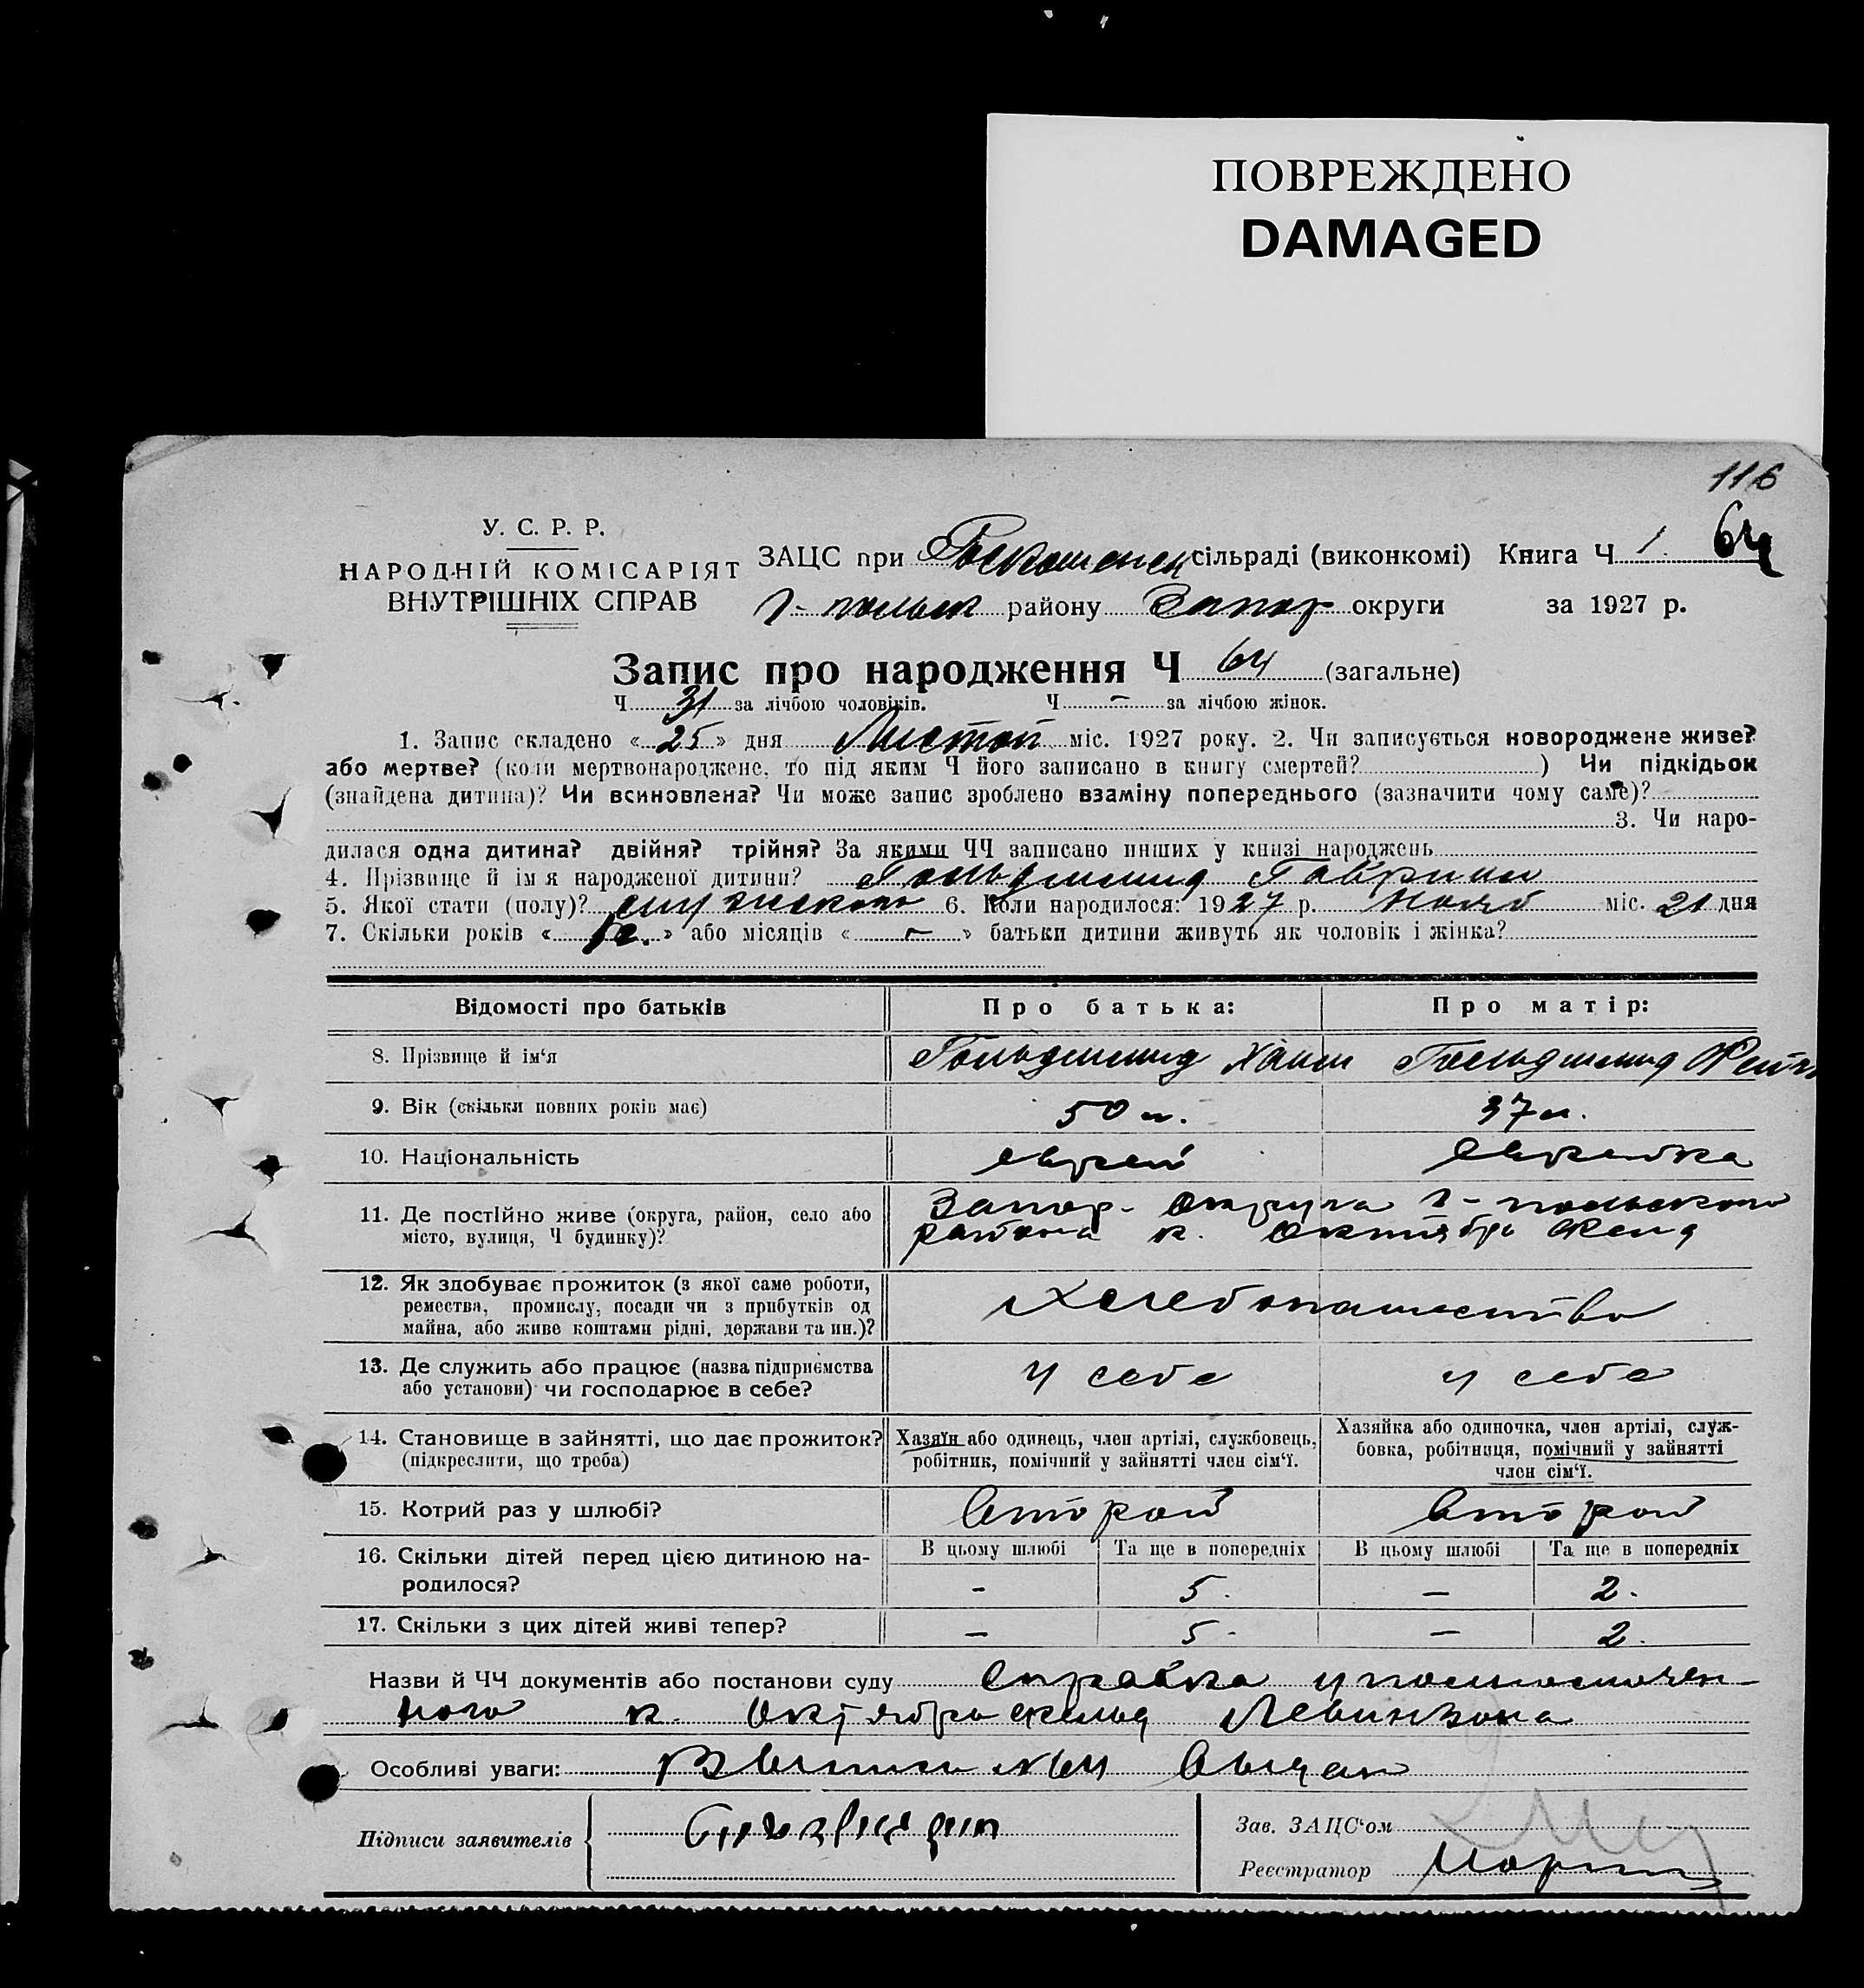 ПОВРЕЖДЕНО
DAMAGED
116
У. С. Р. Р.
НАРОДНІЙ КОМІСАРІЯТ
ВНУТРІШНІХ СПРАВ
ЗАЦС при сільраді (виконкомі) Книга Ч 1. 64
району Запор округи за 1927 р.
Запис про народження Ч 64 (загальне)
Ч 31 за лічбою чоловіків. Ч – за лічбою жінок.
1. Запис складено « 25 » дня Листоп міс. 1927 року. 2. Чи записується новороджене живе?
або мертве? (коли мертвонароджене, то під яким Ч його записано в книгу смертей? ) Чи підкідьок
(знайдена дитина)? Чи всиновлена? Чи може запис зроблено взаміну попереднього (зазначити чому саме)?
3. Чи наро-
дилася одна дитина? двійня? трійня? За якими ЧЧ записано инших у книзі народжень
4. Прізвище й імя народженої дитини? Гольдшмид Гавриил
5. Якої стати (полу)? мужского 6. Коли народилося: 1927 р. Нояб міс. 21 дня
7. Скільки років « » або місяців « – » батьки дитини живуть як чоловік і жінка?
Відомості про батьків Про батька: Про матір:
8. Прізвище й ім‘я Гольдшмид Хаим Гольдшмид
9. Вік (скільки повних років має) 50 л. 37 л.
10. Національність еврей еврейка
11. Де постійно живе (округа, район, село або
місто, вулиця, Ч будинку)?
Запор. Округа г-польского
района к. Октябрь Фельд
12. Як здобуває прожиток (з якої саме роботи,
ремества, промислу, посади чи з прибутків од
майна, або живе коштами рідні, держави та ин.)?
Хлебопашество
13. Де служить або працює (назва підприємства
або установи) чи господарює в себе?
у себе у себе
14. Становище в зайнятті, що дає прожиток?
(підкреслити, що треба)
Хазяїн або одинець, член артілі, службовець,
робітник, помічний у зайнятті член сім‘ї.
Хазяйка або одиночка, член артілі, служ-
бовка, робітниця, помічний у зайнятті
член сім‘ї.
15. Котрий раз у шлюбі? второй второй
16. Скільки дітей перед цією дитиною на-
родилося?
В цьому шлюбі Та ще в попередніх В цьому шлюбі Та ще в попередніх
– 5. – 2.
17. Скільки з цих дітей живі тепер? – 5. – 2.
Назви й ЧЧ документів або постанови суду справка уполномочен-
ного к. Октябрьфельд Левинзона
Особливі уваги: Выпись №64 выдан
Підписи заявителів
Зав. ЗАЦС‘ом
Реєстратор